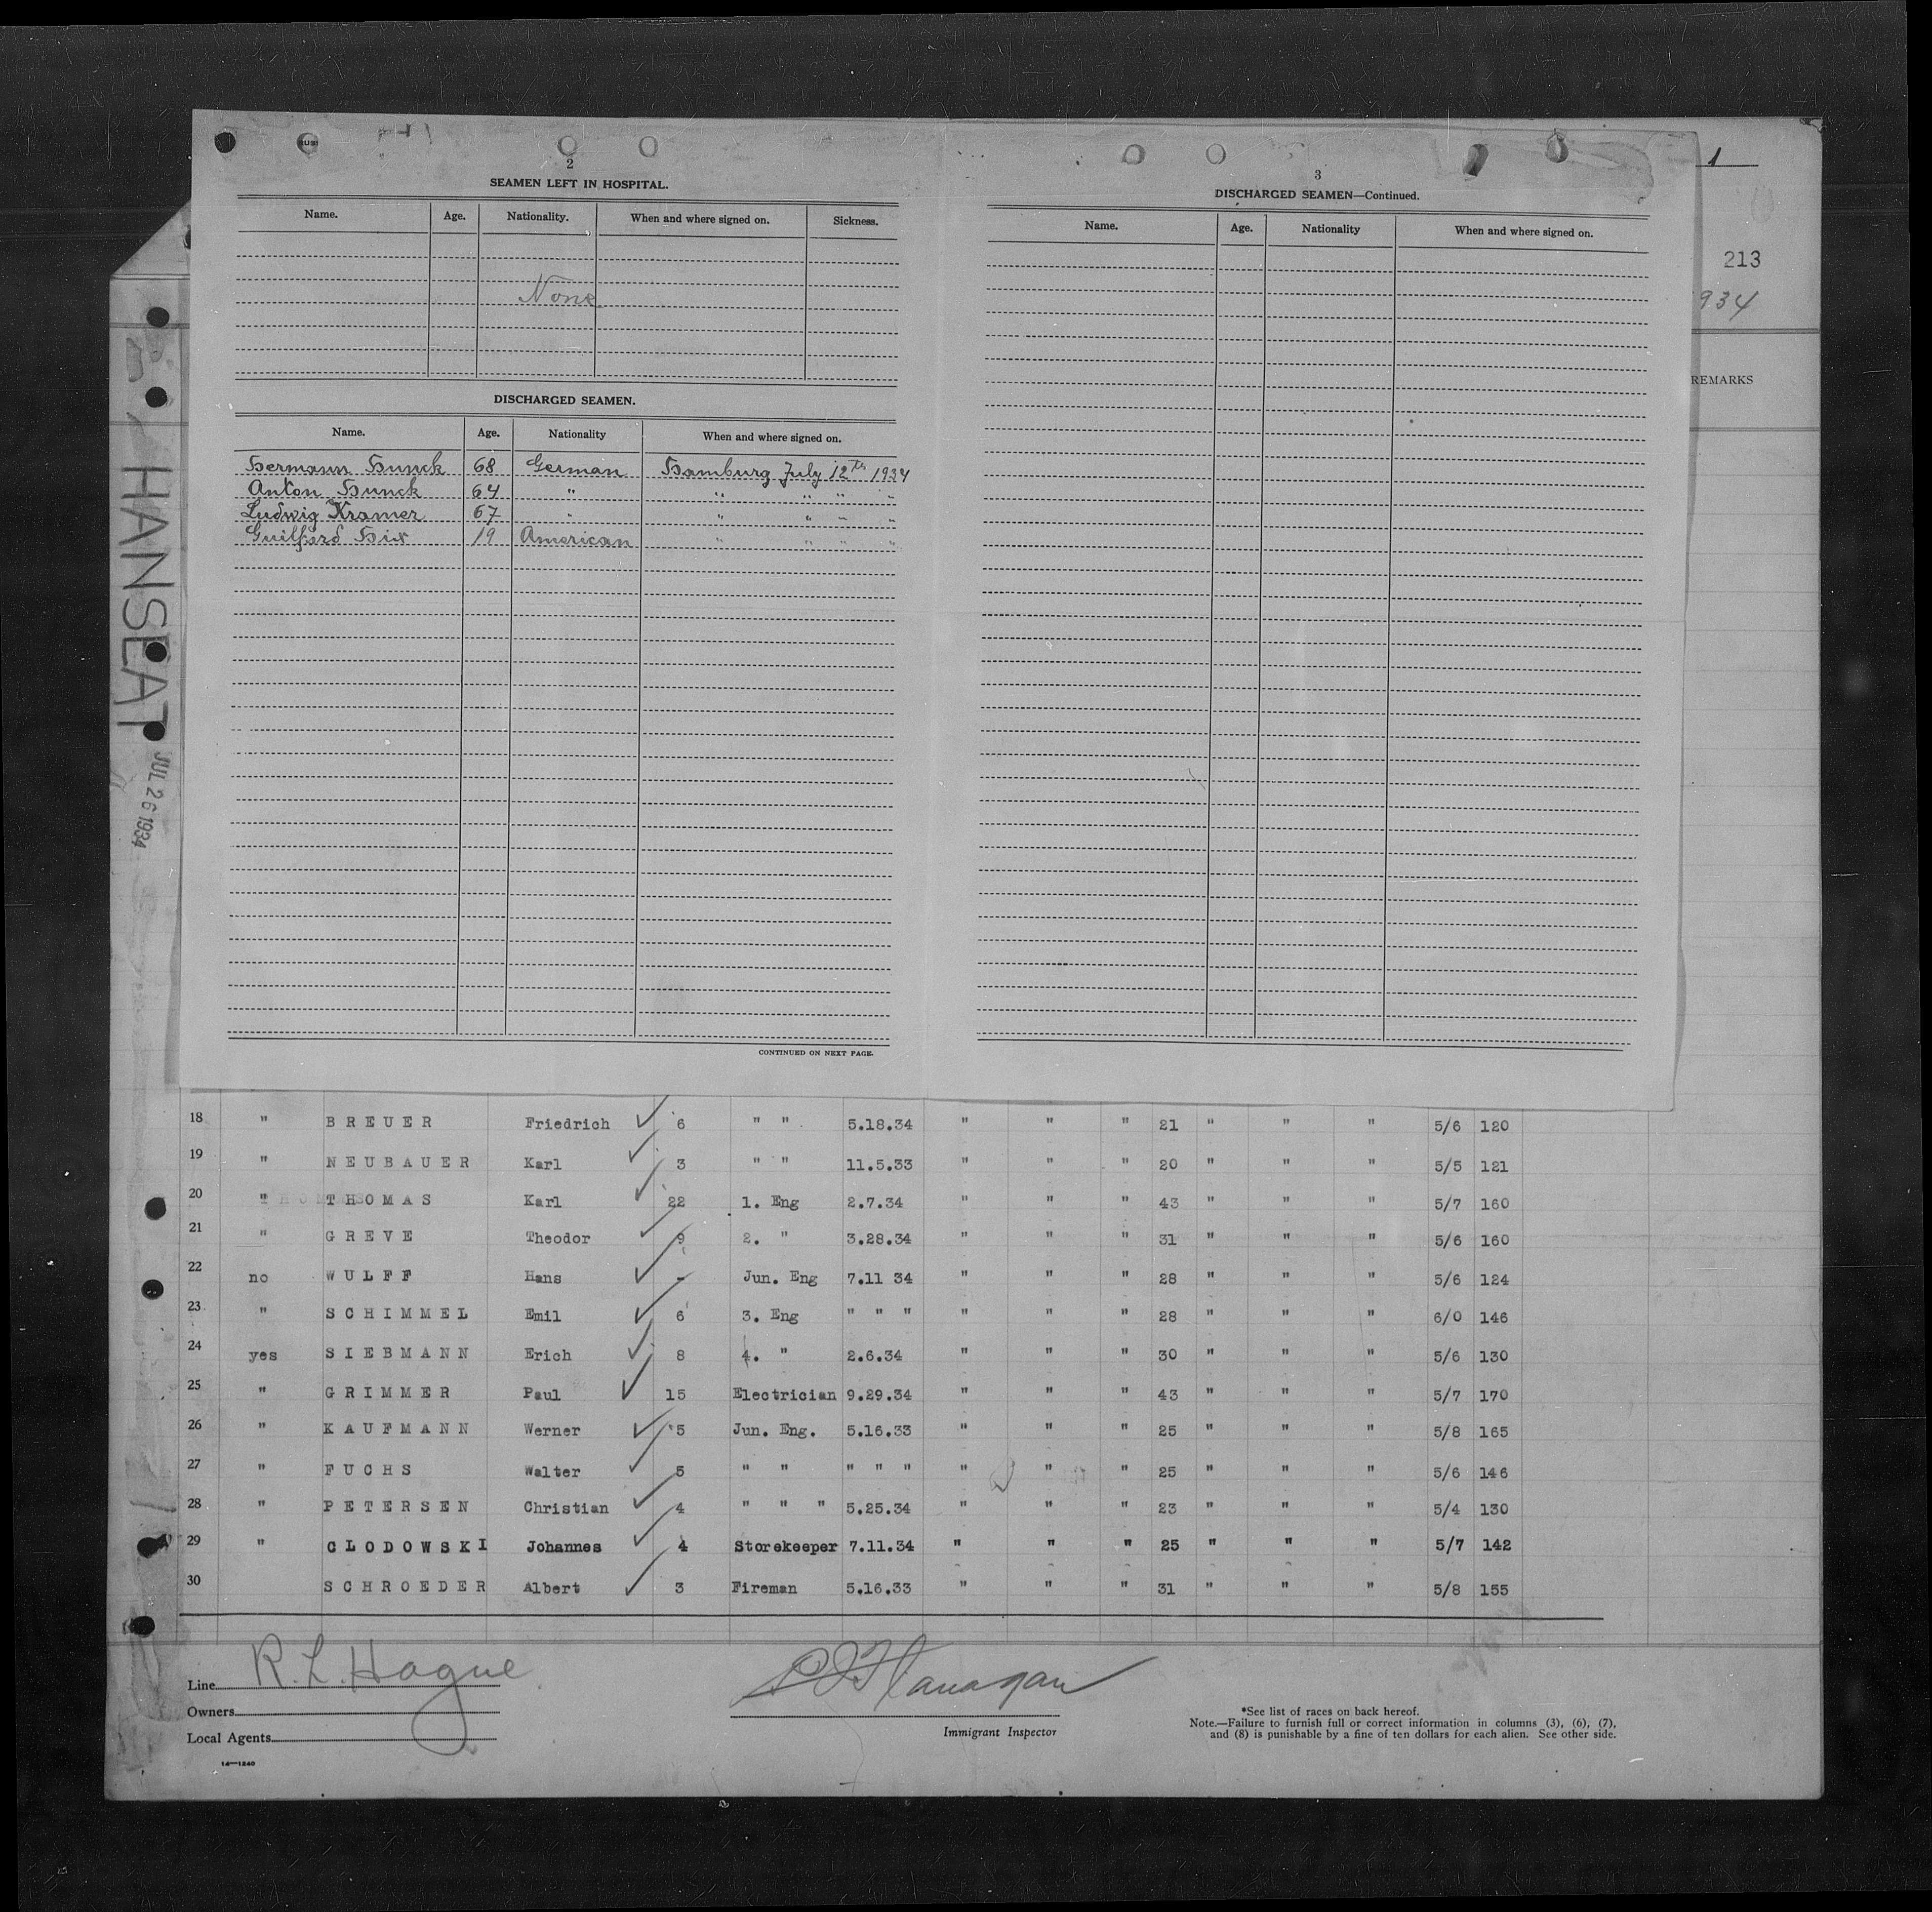 2
SEAMEN LEFT IN HOSPITAL.
Name. Age. Nationality. When and where signed on. Sickness.
None
DISCHARGED SEAMEN.
Name. Age. Nationality When and where signed on.
Hermann Hunck 68 German Hamburg July 12th 1934
Anton Hunck 64 " " " " "
Ludwig Kramer 67 " " " " "
Guilford Hix 19 American " " " "
CONTINUED ON NEXT PAGE.
3
DISCHARGED SEAMEN—Continued.
Name. Age. Nationality When and where signed on.
1
213
1934
REMARKS
HANSEAT
JUL 26 1934
18 " BREUER Friedrich 6 " " 5.18.34 " " " 21 " " " 5/6 120
19 " NEUBAUER Karl 3 " " 11.5.33 " " " 20 " " " 5/5 121
20 " THOMAS Karl 22 1. Eng 2.7.34 " " " 43 " " " 5/7 160
21 " GREVE Theodor 9 2. " 3.28.34 " " " 31 " " " 5/6 160
22 no WULFF Hans - Jun. Eng 7.11 34 " " " 28 " " " 5/6 124
23 " SCHIMMEL Emil 6 3. Eng " " " " " " 28 " " " 6/0 146
24 yes SIEBMANN Erich 8 4. " 2.6.34 " " " 30 " " " 5/6 130
25 " GRIMMER Paul 15 Electrician 9.29.34 " " " 43 " " " 5/7 170
26 " KAUFMANN Werner 5 Jun. Eng. 5.16.33 " " " 25 " " " 5/8 165
27 " FUCHS Walter 5 " " " " " " " " 25 " " " 5/6 146
28 " PETERSEN Christian 4 " " " 5.25.34 " " " 23 " " " 5/4 130
29 " CLODOWSKI Johannes 4 Storekeeper 7.11.34 " " " 25 " " " 5/7 142
30 SCHROEDER Albert 3 Fireman 5.16.33 " " " 31 " " " 5/8 155
R. L. Hague
Line
Owners
Local Agents
14—1240
Flanagan
Immigrant Inspector
*See list of races on back hereof.
Note.—Failure to furnish full or correct information in columns (3), (6), (7),
and (8) is punishable by a fine of ten dollars for each alien. See other side.